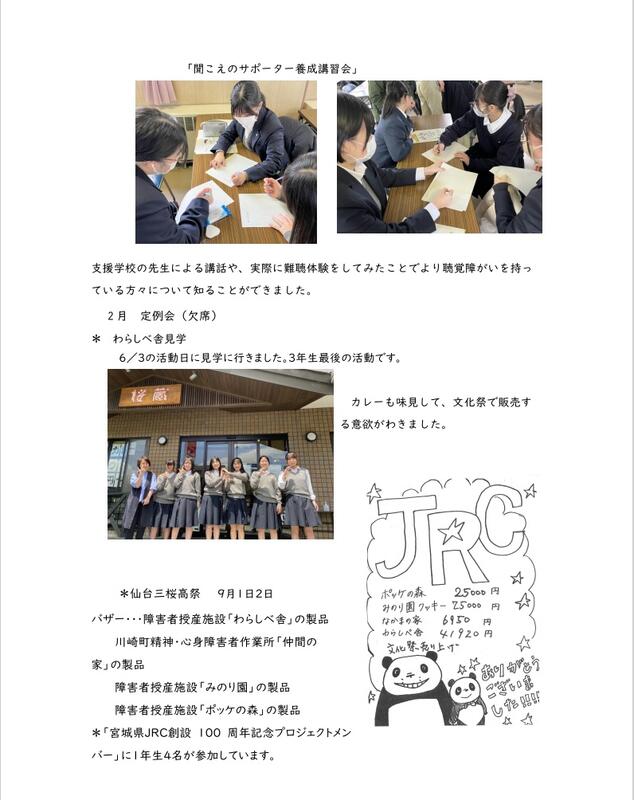 「聞こえのサポーター養成講習会」
支援学校の先生による講話や、実際に難聴体験をしてみたことでより聴覚障がいを持っ
ている方々について知ることができました。
2月　定例会（欠席）
＊　わらしべ舎見学
6／3の活動日に見学に行きました。3年生最後の活動です。
桜蔵
カレーも味見して、文化祭で販売す
る意欲がわきました。
JRC
ポッケの森　25000円
みのり園クッキー 25000円
なかまの家　6950円
わらしべ舎　41920円
文化祭売り上げ
ありがとう
ございま
した!!!!
＊仙台三桜高祭　9月1日2日
バザー・・・障害者授産施設「わらしべ舎」の製品
川崎町精神・心身障害者作業所「仲間の
家」の製品
障害者授産施設「みのり園」の製品
障害者授産施設「ポッケの森」の製品
＊「宮城県JRC創設 100 周年記念プロジェクトメン
バー」に1年生4名が参加しています。